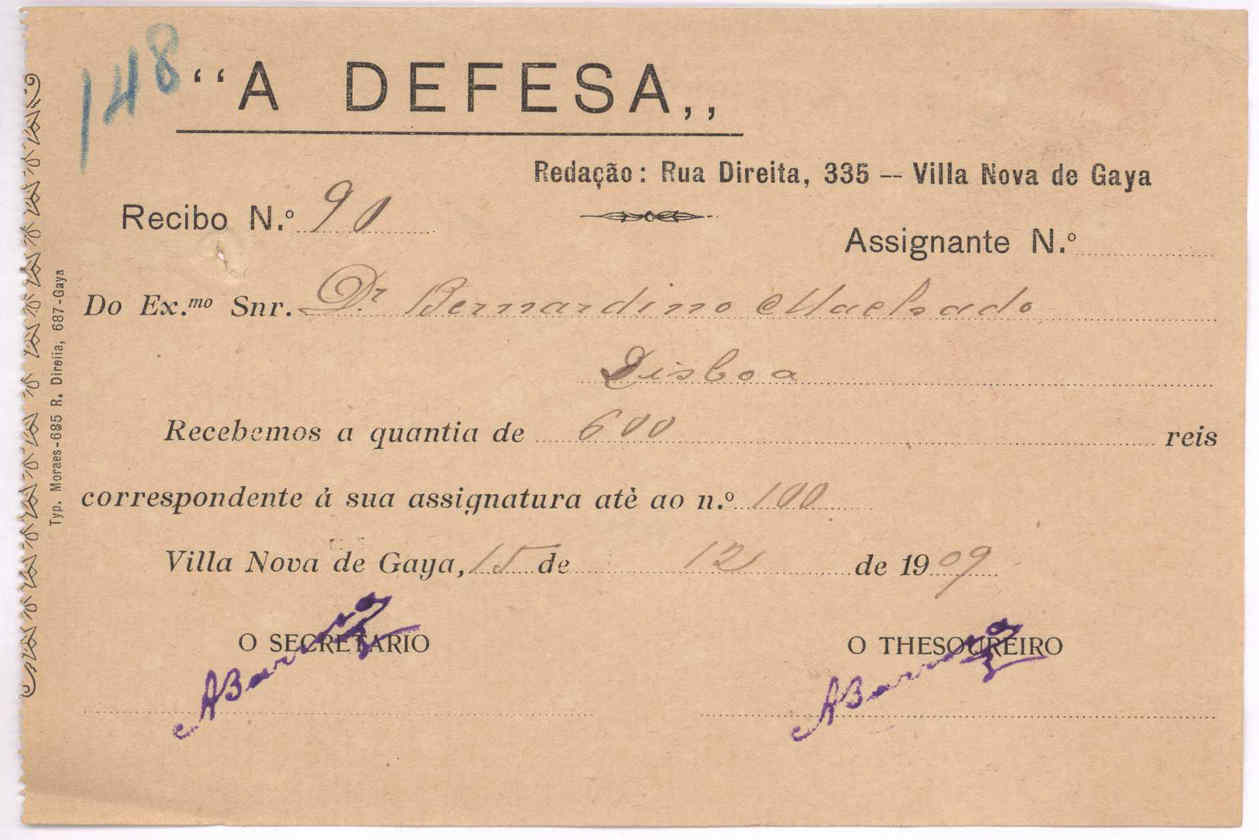 148
“A DEFESA„
Redação: Rua Direita, 335 — Villa Nova de Gaya
Recibo N.º 90
Assignante N.º
Do Ex.mo Snr. Dr Bernardino Machado
Lisboa
Recebemos a quantia de 600 reis
correspondente à sua assignatura atè ao n.º 100
Villa Nova de Gaya, 15 de 12 de 1909
O SECRETARIO
O THESOUREIRO
Typ. Moraes-695 R. Direita, 687-Gaya